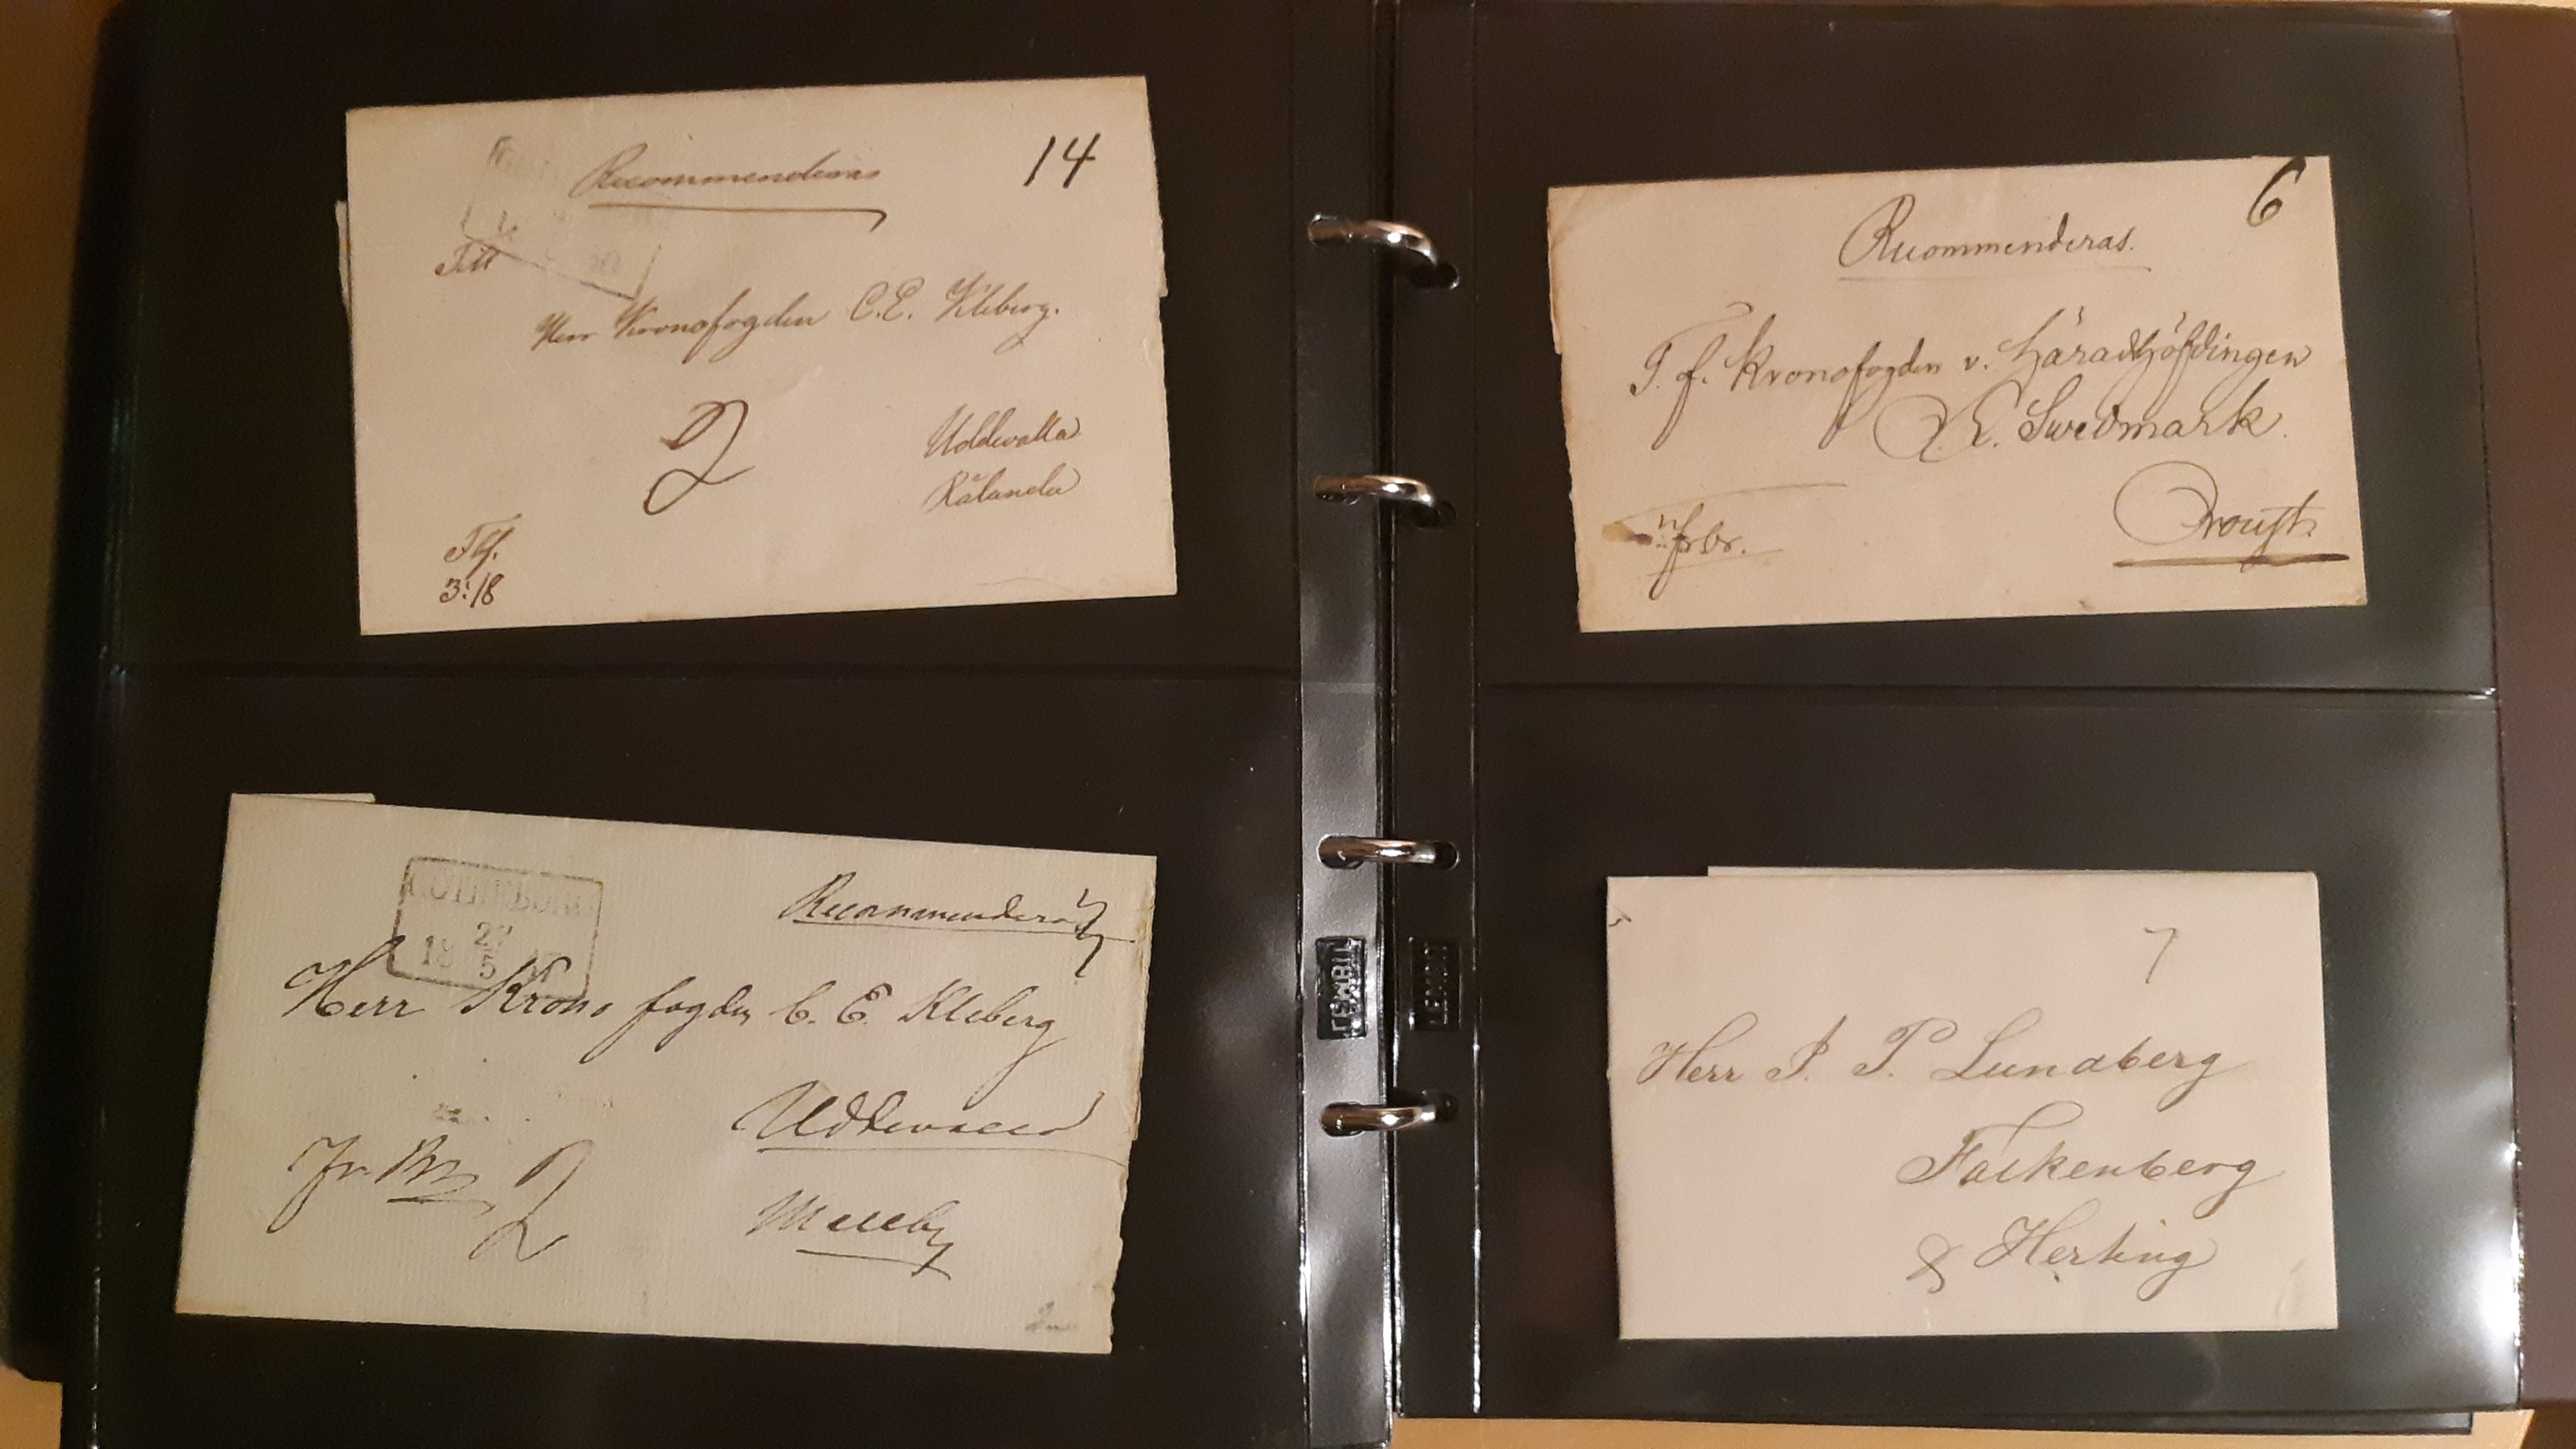 Recommenderas
14
Till
Herr Kronofogden C.E. Kleberg.
2
Uddevalla
Rålanda
3:/8
Recommenderas.
6
T. f. Kronofogden v. Häradshöfdingen
E. Swedmark.
frbr.
GÖTHEBORG
27
18
5
Recommenderas
Herr Kronofogden C. E. Kleberg
Uddevalla
2
Melleby
LEMBIT
LEMBIT
7
Herr J. P. Lundberg
Falkenberg
& Herting